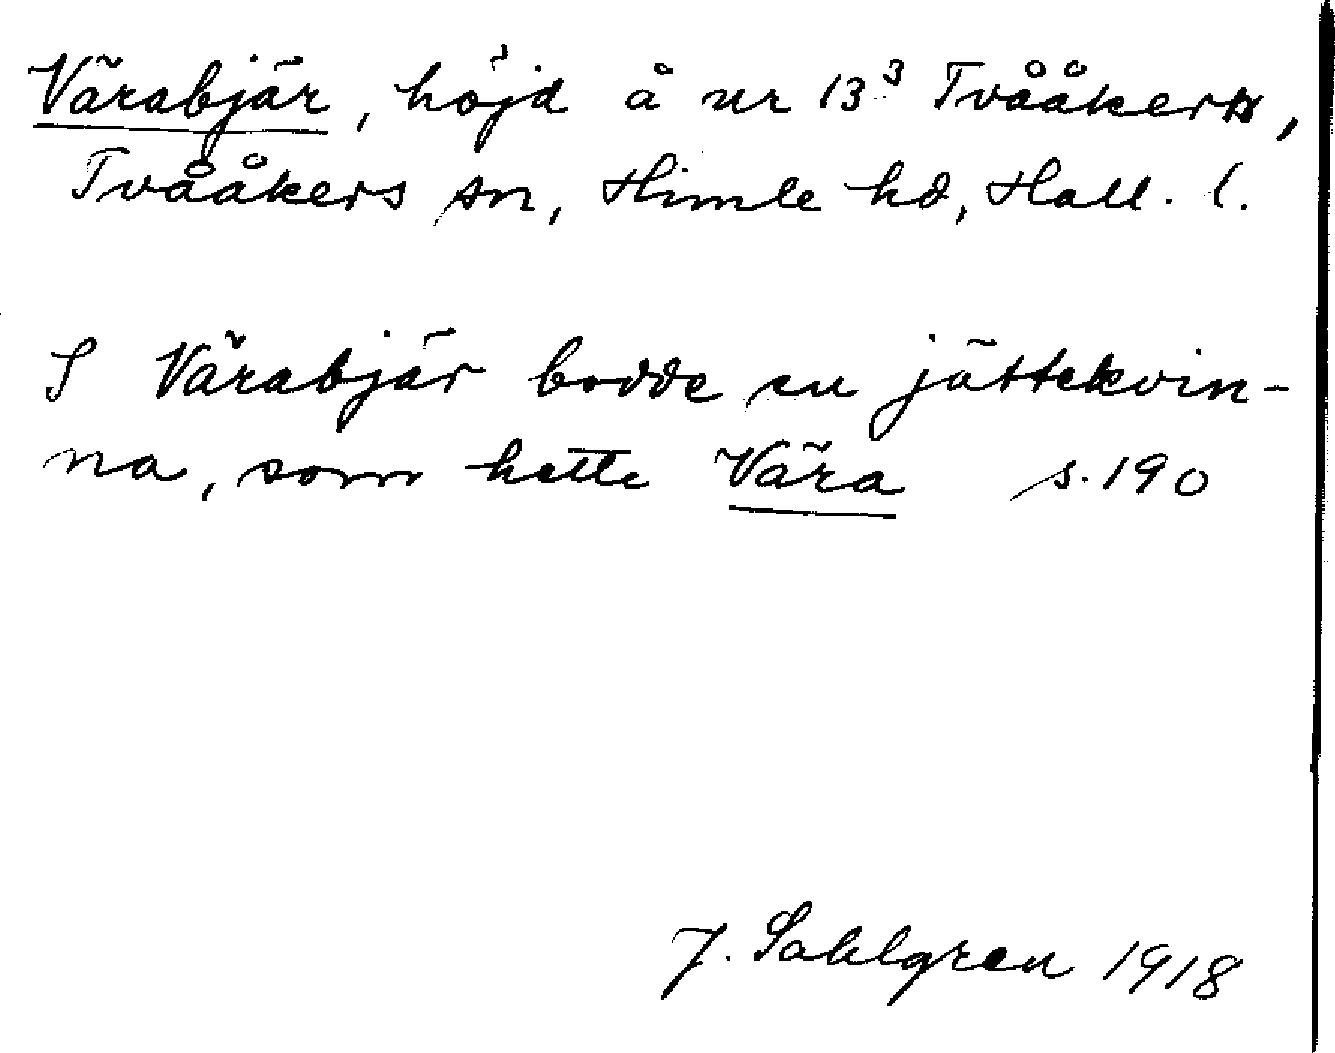 Värabjär, höjd å nr 13³ Tvååkers,
Tvååkers sn, Himle hd, Hall. l.
I Värabjär bodde en jättekvin-
na, som hette Vära s. 190
J. Sahlgren 1918